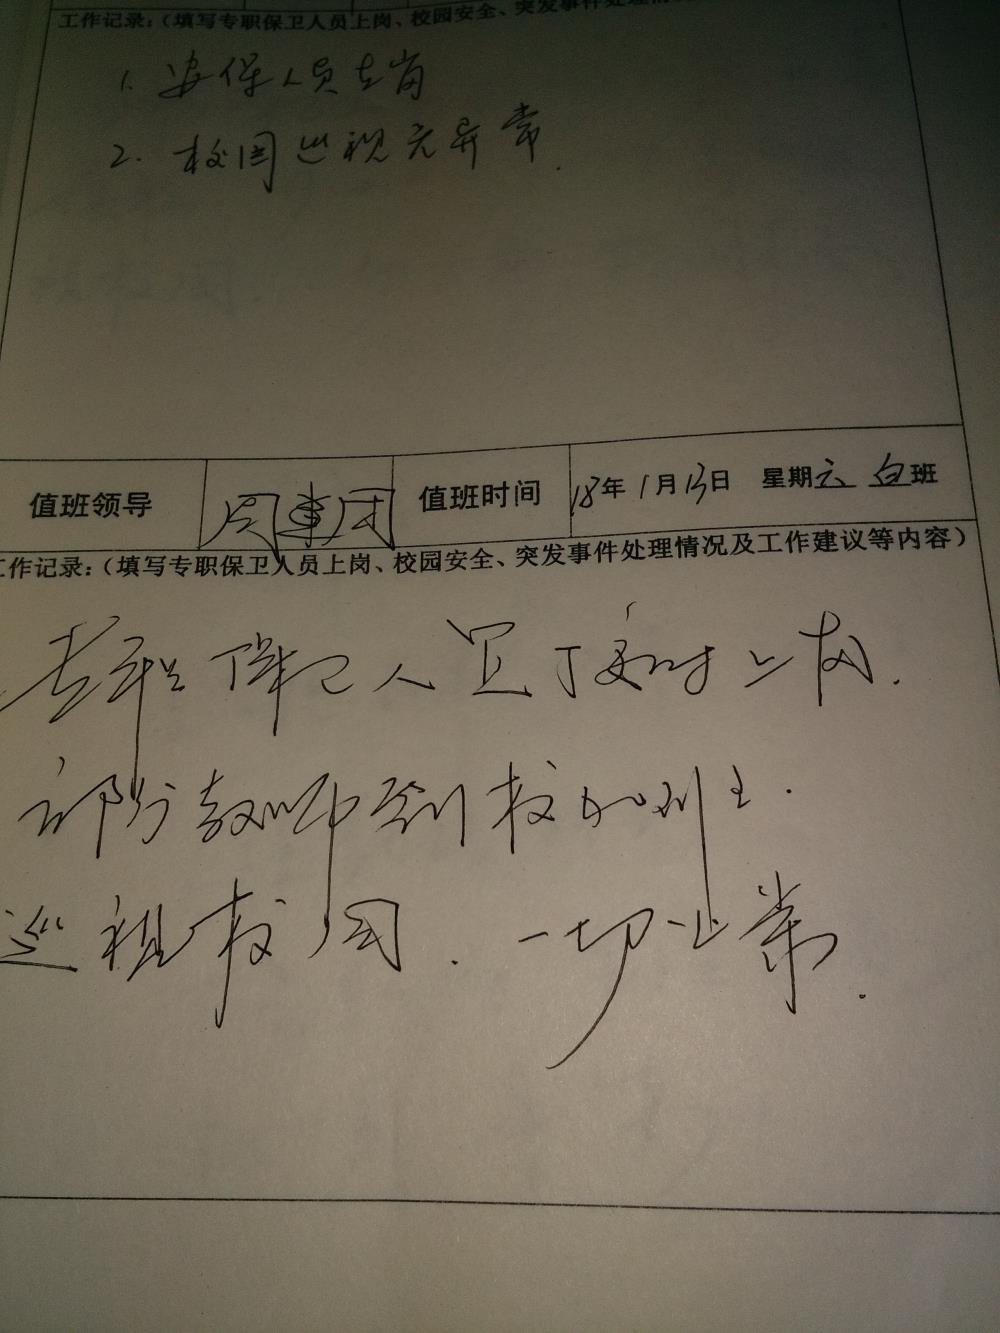 工作记录：（填写专职保卫人员上岗、校园安全、突发事件处理情况
1. 安保人员在岗
2. 校园巡视无异常.
值班领导 周 值班时间 18年1月13日 星期六 白班
工作记录：（填写专职保卫人员上岗、校园安全、突发事件处理情况及工作建议等内容）
专职保卫人员按时上岗.
部分教师到校加班.
巡视校园. 一切正常.